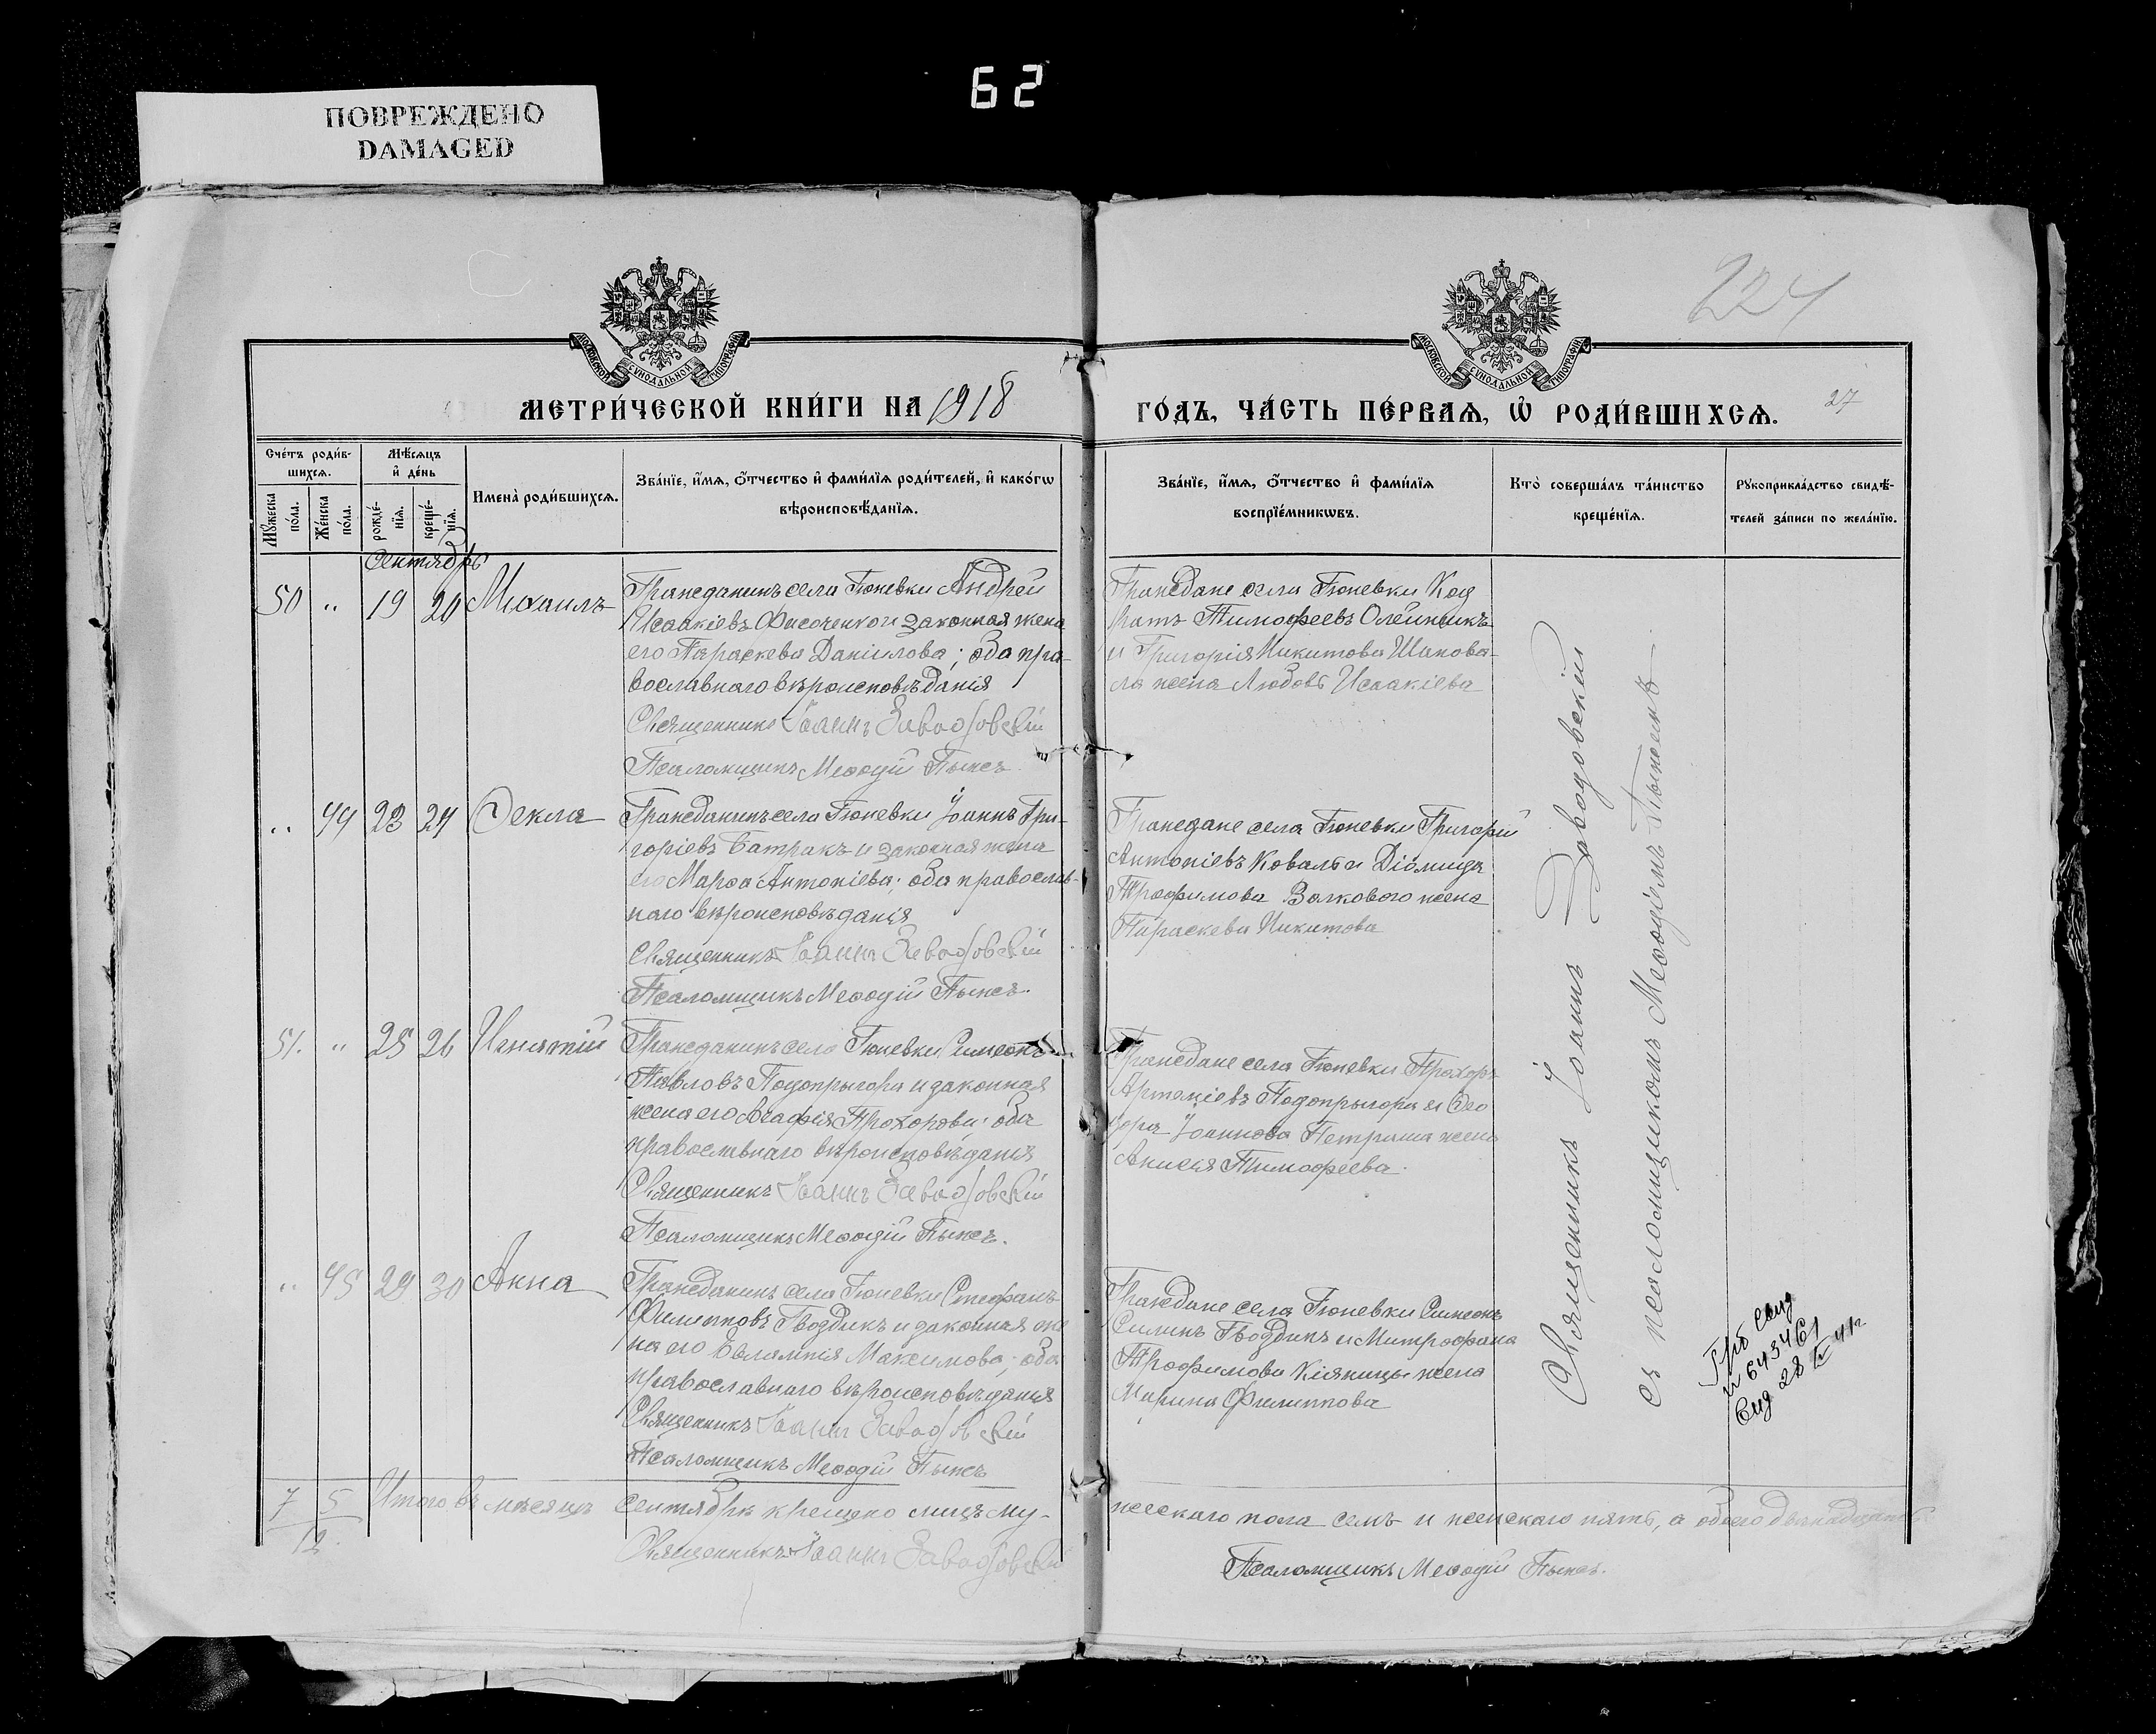 62
ПОВРЕЖДЕНО
DAMAGED
224
27
МОСКОВСКОЙ СѴНОДАЛЬНОЙ ТИПОГРАФІИ
МОСКОВСКОЙ СѴНОДАЛЬНОЙ ТИПОГРАФІИ
МЕТРИ́ЧЕСКОЙ КНИ́ГИ НА 1918
ГО́ДЪ, ЧА́СТЬ ПЕ́РВАѦ, Ѡ҆ РОДИ́ВШИХСѦ.
Сче́тъ роди́в-
шихсѧ.
Мꙋжеска по́ла.
Же́нска по́ла.
Мѣ́сѧцъ
и҆ де́нь
рожде́-
нїѧ.
креще́-
нїѧ.
Имена̀ роди́вшихсѧ.
Зва́нїе, и҆́мѧ, ѻ҆́тчество и҆ фами́лїѧ роди́телей, и҆ како́гѡ
вѣроисповѣ́данїѧ.
Зва́нїе, и҆́мѧ, ѻ҆́тчество и҆ фами́лїѧ
воспрїе́мникѡвъ.
Кто̀ соверша́лъ та́инство
креще́нїѧ.
Рꙋкоприкла́дство свидѣ́-
телей за́писи по жела́нїю.
Сентябрь
50 " 19 20 Михаилъ
Гражданинъ села Гюневки Андрей
Исаакіевъ Фисоченко и законная жена
его Параскева Даніилова; оба пра-
вославнаго вѣроисповѣданія
Священникъ Іоаннъ Заводовскій
Псаломщикъ Меѳодій Пыжъ
Граждане села Гюневки Код
ратъ Тимофеевъ Олейникъ
и Григорія Никитова Шапова-
ла жена Любовь Исаакіева
" 44 23 24 Ѳекла
Гражданинъ села Гюневки Іоаннъ Гри-
горіевъ Батракъ и законная жена
его Марѳа Антоніева; оба православ-
наго вѣроисповѣданія
Священникъ Іоаннъ Заводовскій
Псаломщикъ Меѳодій Пыжъ.
Граждане села Гюневки Григорій
Антоніевъ Коваль и Діомида
Трофимова Волкового жена
Параскева Никитова
51. " 25 26 Игнатій
Гражданинъ села Гюневки Симеонъ
Павловъ Подопрыгора и законная
жена его Агафія Прохорова; оба
православнаго вѣроисповѣданія
Священникъ Іоаннъ Заводовскій
Псаломщикъ Меѳодій Пыжъ.
Граждане села Гюневки Прохоръ
Артеміевъ Подопрыгора и Ѳео
дора Іоаннова Петраша жена
Анисія Тимофеева.
" 45 29 30 Анна
Гражданинъ села Гюневки Стефанъ
Филипповъ Гвоздикъ и законная же
на его Евлампія Максимова; оба
православнаго вѣроисповѣданія
Священникъ Іоаннъ Заводовскій
Псаломщикъ Меѳодій Пыжъ
Граждане села Гюневки Симеонъ
Силинъ Гвоздикъ и Митрофана
Трофимова Кіяницы жена
Марина Филиппова
Священникъ Іоаннъ Заводовскій
съ псаломщикомъ Меѳодіемъ Пыжемъ
Грб свид
и 643461
Вид 28 IV 41г
7 5 Итого въ мѣсяцѣ сентябрѣ крещено лицъ му-
жескаго пола семь и женскаго пять, а обоего двѣнадцать.
12.
Священникъ Іоаннъ Заводовскій
Псаломщикъ Меѳодій Пыжъ.